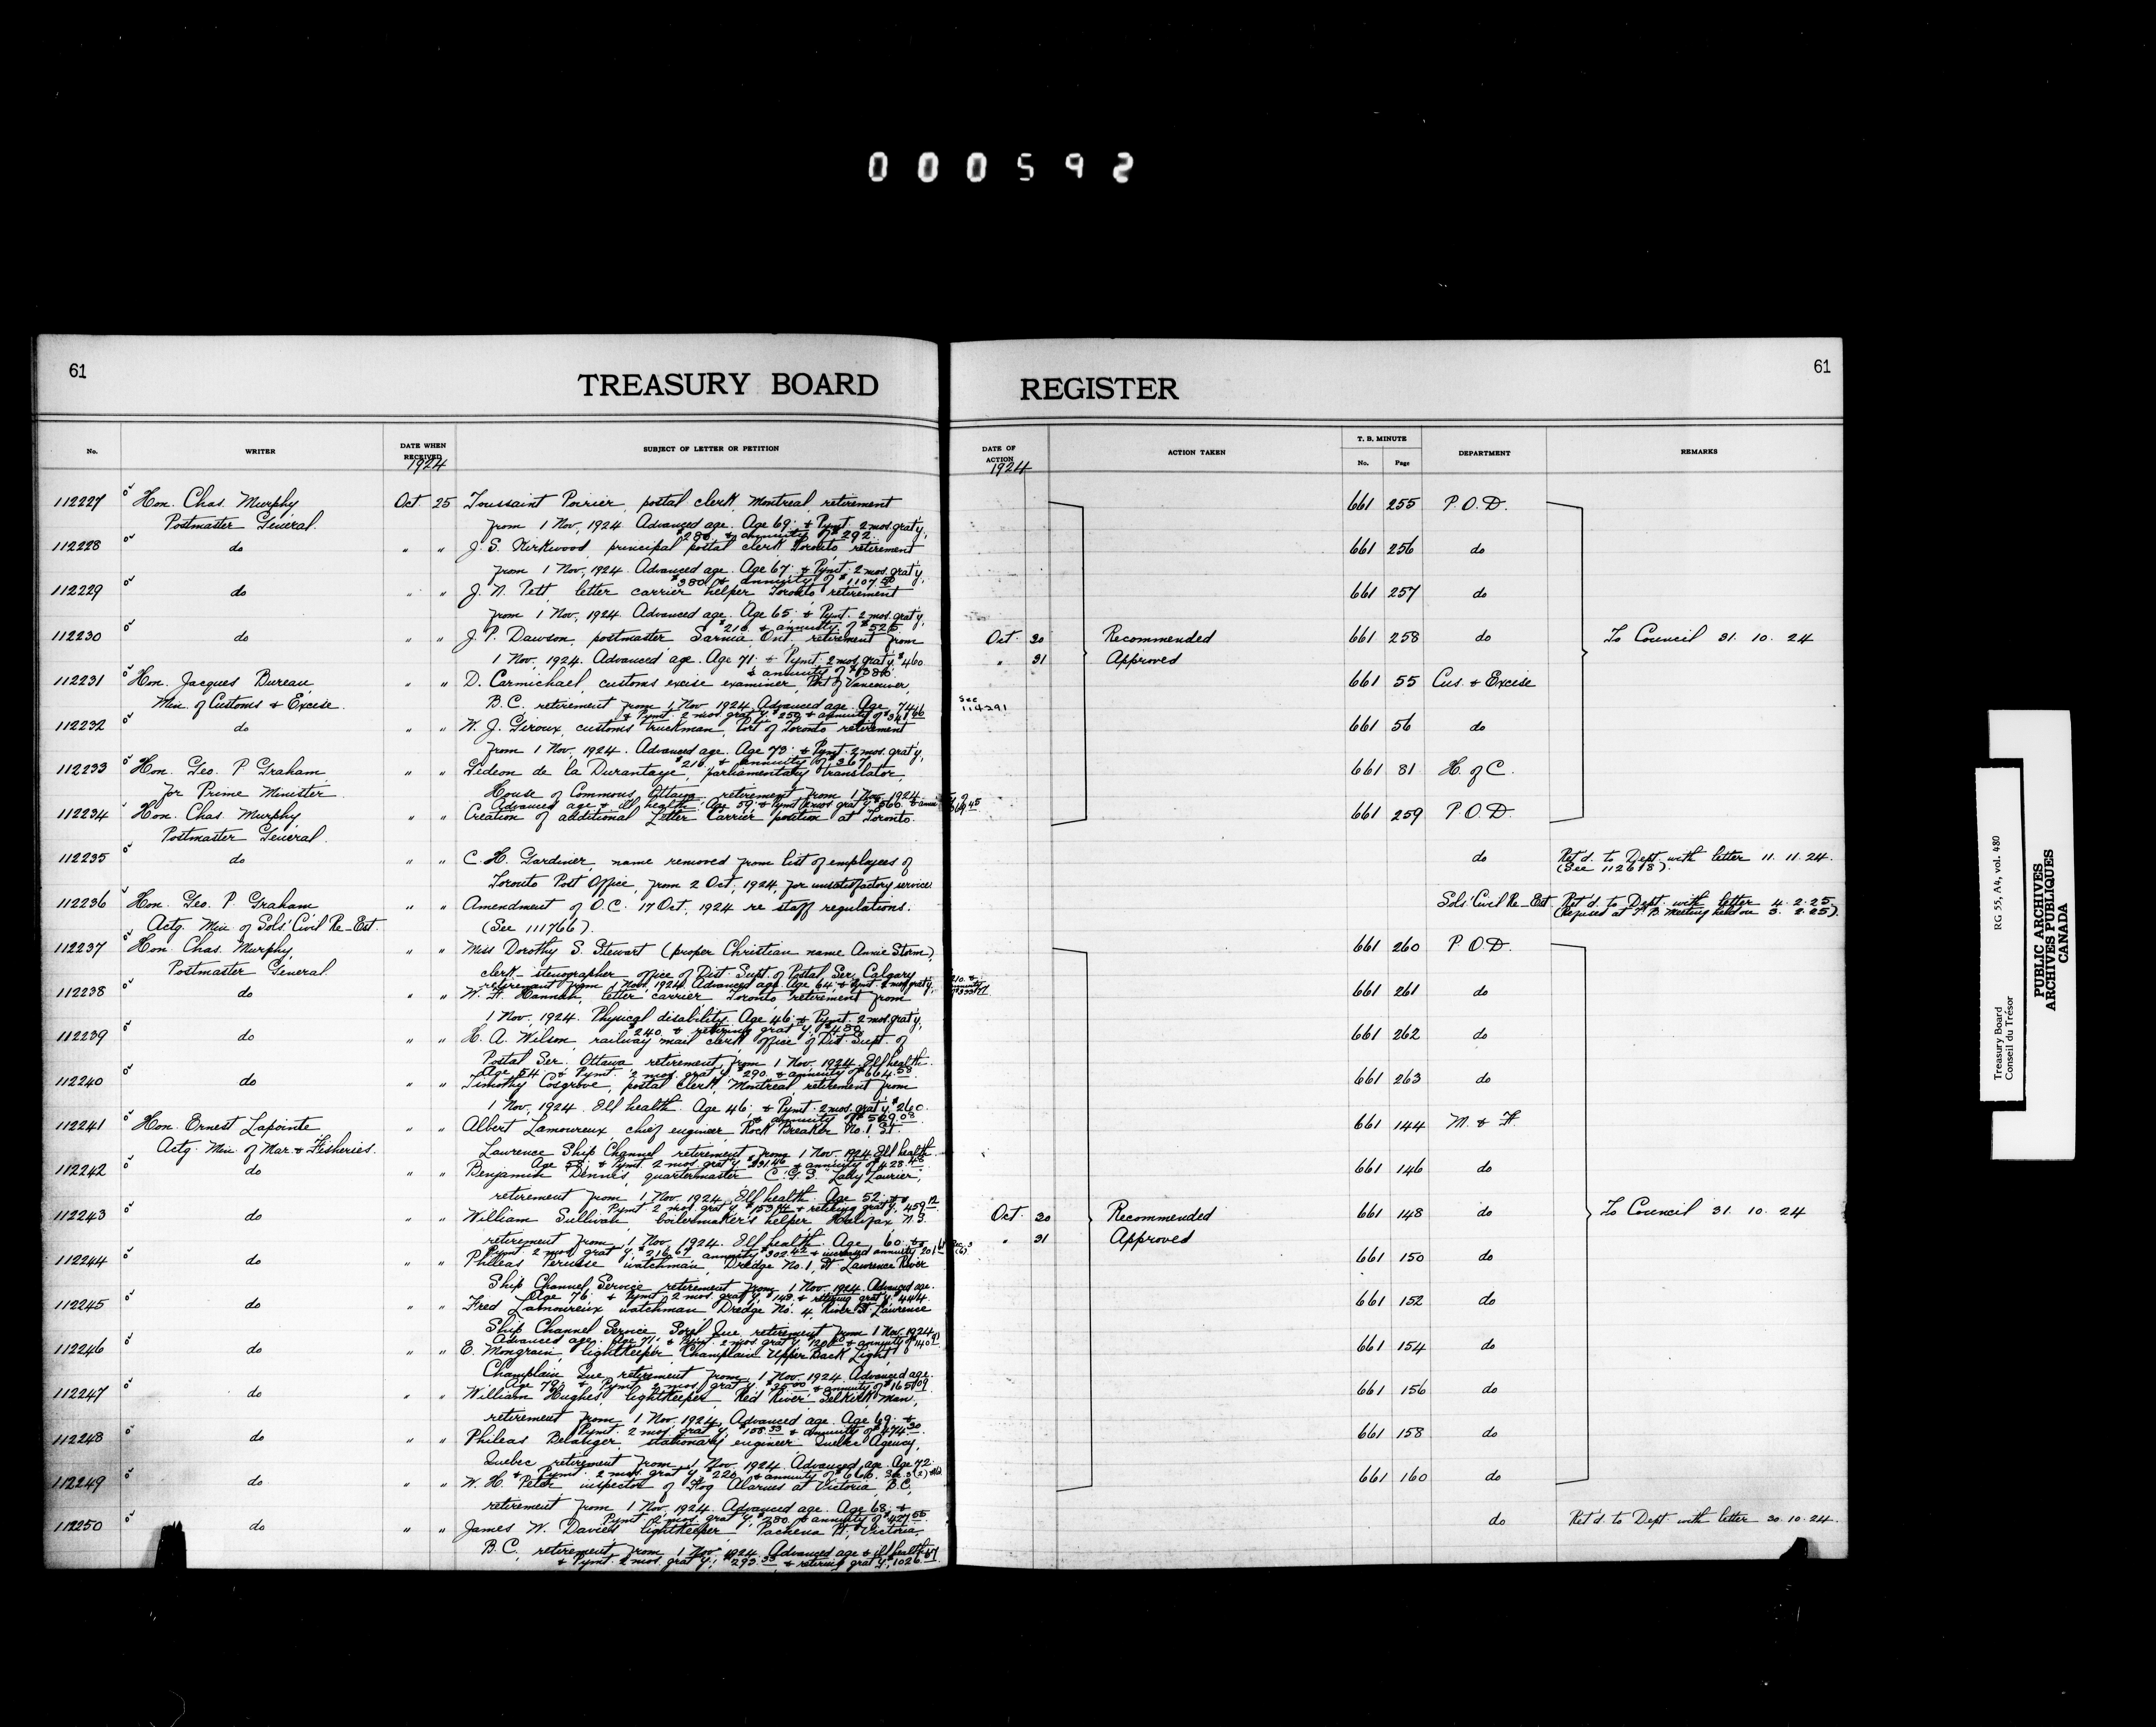 000592
61
TREASURY BOARD
REGISTER
61
No.
WRITER
DATE WHEN RECEIVED
1924
SUBJECT OF LETTER OR PETITION
DATE OF ACTION
1924
ACTION TAKEN
T. B. MINUTE
No.
Page
DEPARTMENT
REMARKS
112227 Hon. Chas. Murphy, Oct. 25 Toussaint Poirier, postal clerk, Montreal, retirement 661 255 P.O.D.
Postmaster General. from 1 Nov., 1924. Advanced age. Age 69; & Pymt. 2 mos. grat'y,
$280, & annuity of $292.
112228 do " " J. S. Kirkwood, principal postal clerk, Toronto, retirement 661 256 do
from 1 Nov., 1924. Advanced age. Age 67; & Pymt. 2 mos. grat'y,
$380, & annuity of $1107.50
112229 do " " J. N. Pett, letter carrier helper Toronto retirement 661 257 do
from 1 Nov., 1924. Advanced age. Age 65; & Pymt. 2 mos. grat'y,
$210, & annuity of $525.
112230 do " " J. P. Dawson, postmaster Sarnia Ont. retirement from Oct. 30 Recommended 661 258 do To Council 31. 10. 24
1 Nov., 1924. Advanced age. Age 71; & Pymt. 2 mos. grat'y, $460 " 31 Approved
& annuity of $1380.
112231 Hon. Jacques Bureau, " " D. Carmichael, customs excise examiner, Port of Vancouver, 661 55 Cus. & Excise
Min. of Customs & Excise. B.C., retirement from 1 Nov. 1924. Advanced age. Age 74 See 114291
& Pymt. 2 mos. grat'y, $250 & annuity of $341.66
112232 do " " W. J. Giroux, customs truckman, Port of Toronto retirement 661 56 do
from 1 Nov., 1924. Advanced age. Age 73; & Pymt. 2 mos. grat'y,
$210, & annuity of $367.
112233 Hon. Geo. P. Graham, " " Gideon de la Durantaye, parliamentary translator, 661 81 H. of C.
for Prime Minister. House of Commons, Ottawa, retirement from 1 Nov. 1924.
Advanced age & ill health. Age 59; & Pymt 2 mos grat'y, $560.
112234 Hon. Chas. Murphy, " " Creation of additional Letter Carrier position at Toronto. 661 259 P.O.D.
Postmaster General.
112235 do " " C. H. Gardiner, name removed from list of employees of do Ret'd. to Dept. with letter 11. 11. 24.
Toronto Post Office, from 2 Oct., 1924, for unsatisfactory service. (See 112678).
112236 Hon. Geo. P. Graham " " Amendment of O.C. 17 Oct., 1924 re staff regulations. Sols. Civil Re-Est Ret'd. to Dept. with letter 4. 2. 25
Actg. Min. of Sols.' Civil Re-Est. (See 111766). (Refused at T. B. meeting held on 3. 2. 25).
112237 Hon. Chas. Murphy, " " Miss Dorothy S. Stewart (proper Christian name Annie Storm), 661 260 P.O.D.
Postmaster General. clerk-stenographer office of Dist. Supt. of Postal Ser. Calgary
retirement from 1 Nov., 1924. Advanced age. Age 64 & Pymt. 2 mos grat'y,
112238 do " " W. F. Hannah, letter carrier, Toronto retirement from 661 261 do
1 Nov., 1924. Physical disability. Age 46; & Pymt. 2 mos. grat'y,
$240, & retiring grat'y, $480.
112239 do " " H. A. Wilson, railway mail clerk office of Dist. Supt. of 661 262 do
Postal Ser. Ottawa retirement from 1 Nov. 1924. Ill health.
Age 54 & Pymt. 2 mos. grat'y, $290. & annuity of $664.58
112240 do " " Timothy Cosgrove, postal clerk, Montreal retirement from 661 263 do
1 Nov., 1924. Ill health. Age 46; & Pymt. 2 mos. grat'y, $260.
& annuity of $509.08
112241 Hon. Ernest Lapointe " " Albert Lamoureux, chief engineer, Rock Breaker No. 1, St. 661 144 M. & F.
Actg. Min. of Mar. & Fisheries. Lawrence Ship Channel retirement from 1 Nov. 1924. Ill health
Age 58; & Pymt. 2 mos grat'y, $291.46 & annuity of $428.45
112242 do " Benjamin Dennis, quartermaster C.G.S. "Lady Laurier", 661 146 do
retirement from 1 Nov. 1924. Ill health. Age 52; &
Pymt. 2 mos. grat'y, & retiring grat'y, 459.12
112243 do " " William Sullivan boilermaker's helper Halifax N.S. Oct. 30 Recommended 661 148 do To Council 31. 10. 24
retirement from 1 Nov. 1924. Ill health. Age 60; & " 31 Approved
Pymt. 2 mos grat'y, $216.67 annuity $302.42 & increased annuity
112244 do " " Phileas Perusse watchman, Dredge No. 1, St. Lawrence River 661 150 do
Ship Channel Service retirement from 1 Nov. 1924. Advanced age.
Age 76; & Pymt. 2 mos. grat'y, $148. & retiring grat'y, 444.
112245 do " " Fred Lamoureux watchman Dredge No. 4, River St. Lawrence 661 152 do
Ship Channel Service Sorel Que. retirement from 1 Nov. 1924
Advanced age. Age 71; & Pymt. 2 mos. grat'y, & annuity of
112246 do " " E. Mongrain, lightkeeper Champlain Upper Back Light, 661 154 do
Champlain Que. retirement from 1 Nov. 1924. Advanced age.
Age 79; & Pymt. 2 mos. grat'y, & annuity of $165.09
112247 do " " William Hughes, lightkeeper, Red River Selkirk, Man., 661 156 do
retirement from 1 Nov. 1924. Advanced age. Age 69; &
Pymt. 2 mos. grat'y, $158.33 & annuity of $474.30
112248 do " " Phileas Belanger, stationary engineer Quebec Agency, 661 158 do
Quebec retirement from 1 Nov. 1924. Advanced age. Age 72
& Pymt. 2 mos. grat'y, $220, & annuity of $660.
112249 do " " W. H. Peter, inspector of Fog Alarms at Victoria, B.C., 661 160 do
retirement from 1 Nov. 1924. Advanced age. Age 68; &
Pymt 2 mos. grat'y, $280, & annuity of
112250 do " " James W. Davies lightkeeper Pachena Pt., Victoria, do Ret'd. to Dept. with letter 30. 10. 24.
B.C., retirement from 1 Nov. 1924. Advanced age & ill health
& Pymt. 2 mos. grat'y, $293.33 & retiring grat'y, 1026.67
Treasury Board
Conseil du Trésor
RG 55, A4, vol. 480
PUBLIC ARCHIVES
ARCHIVES PUBLIQUES
CANADA